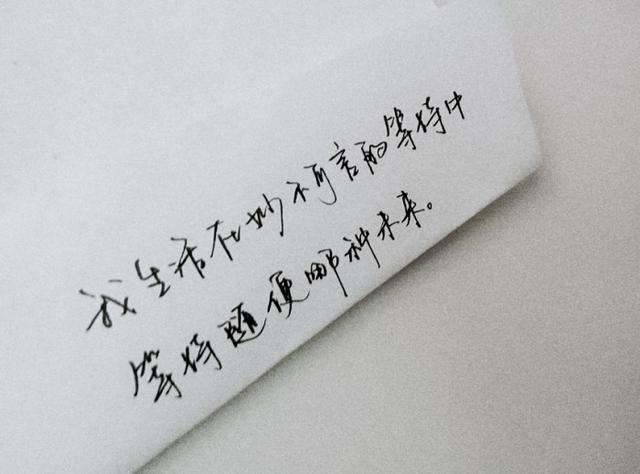 我生活在妙不可言的等待中
等待随便哪种未来。